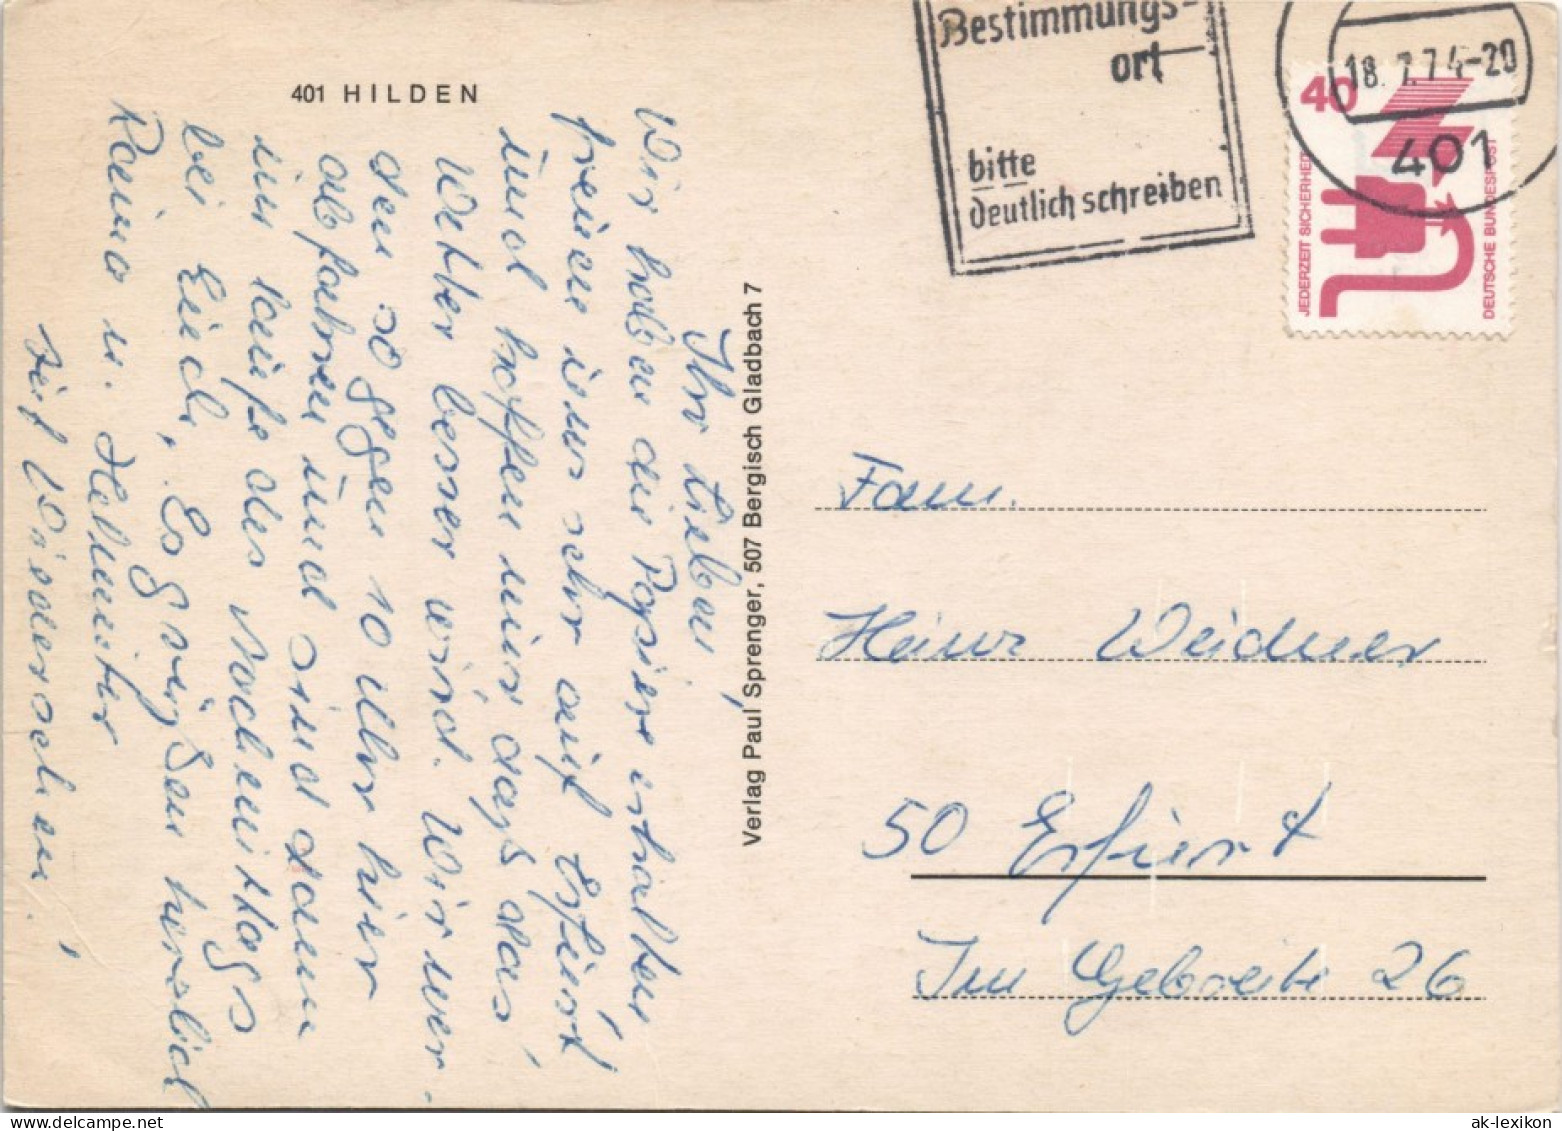 401 HILDEN
Ihr Lieben,
Wir haben die Papiere erhalten
freuen uns sehr auf Erfurt
und hoffen nur daß das
Wetter besser wird. Wir wer-
den so gegen 10 Uhr hier
abfahren und sind dann
im Laufe des Nachmittags
bei Euch. Es grüßen herzlich
u. Helmuter
Auf Wiedersehen!
Verlag Paul Sprenger, 507 Bergisch Gladbach 7
Bestimmungs-
ort
bitte
deutlich schreiben
18.7.74-20
401
40
JEDERZEIT SICHERHEIT
DEUTSCHE BUNDESPOST
Fam.
Heinz Weidner
50 Erfurt
Im Gebreite 26
ak-lexikon